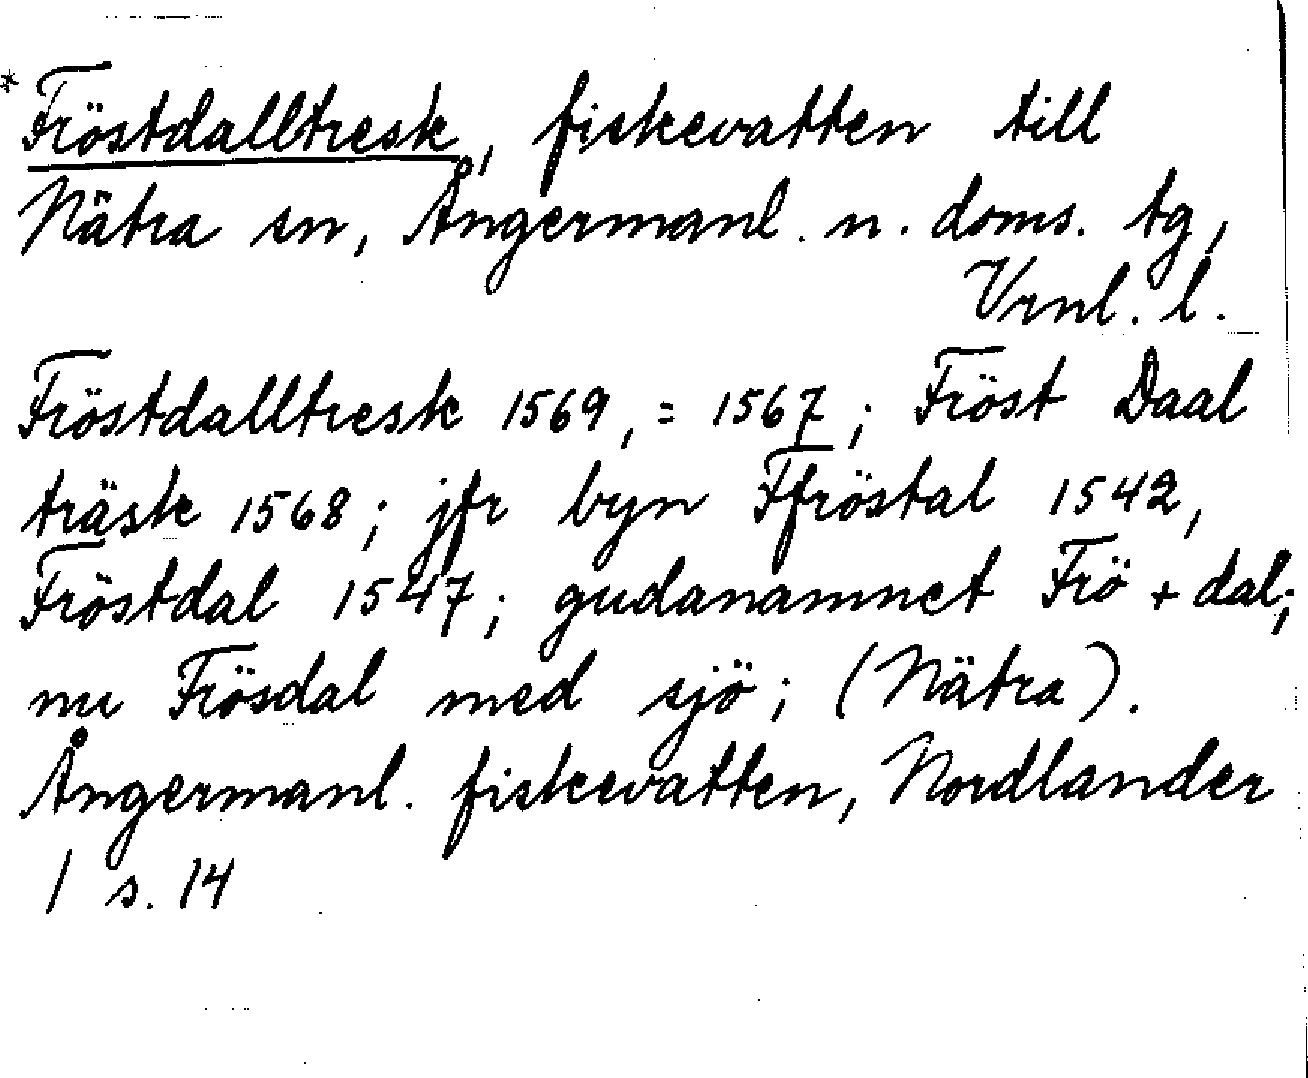 * Fröstdalltresk, fiskevatten till
Nätra sn, Ångermanl. n. doms. tg,
Vrnl. l.
Fröstdalltresk 1569, = 1567; Fröst Daal
träsk 1568; jfr byn Ffröstal 1542,
Fröstdal 1547; gudanamnet Frö + dal;
nu Frösdal med sjö; (Nätra).
Ångermanl. fiskevatten, Nordlander
1 s. 14